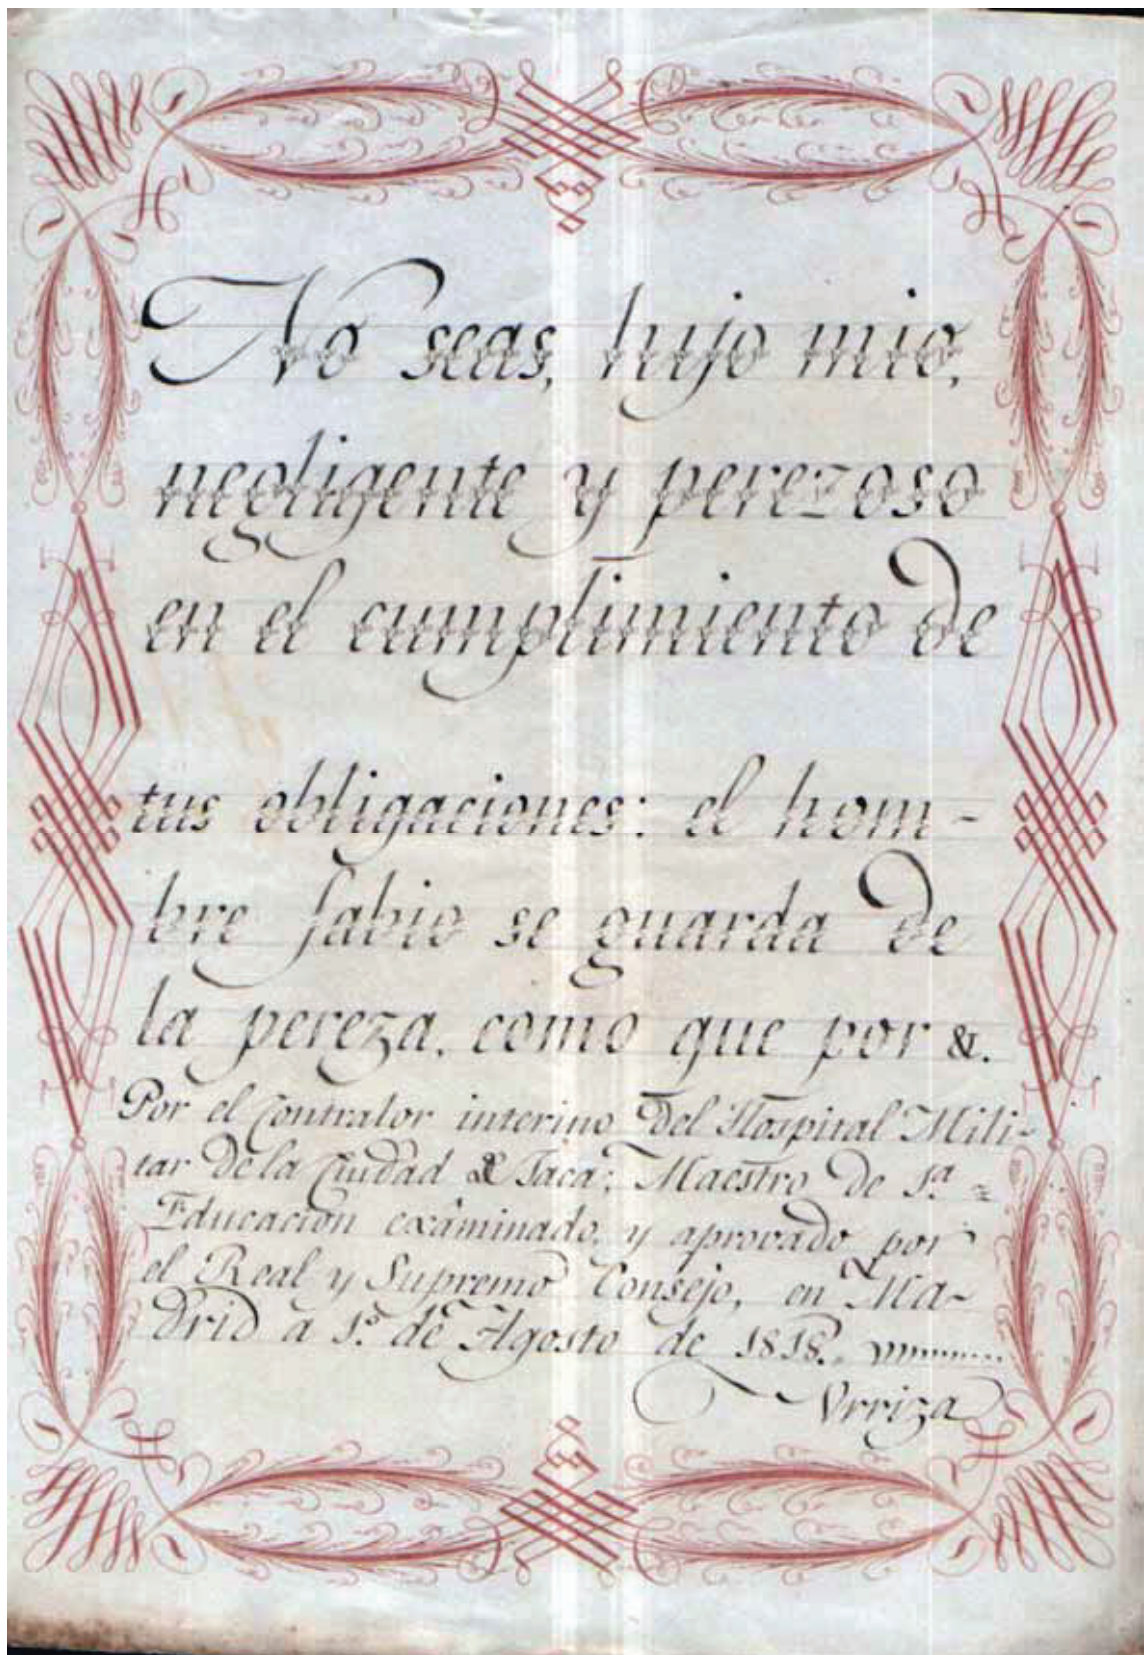 No seas, hijo mio,
negligente y perezoso
en el cumplimiento de
tus obligaciones: el hom-
bre sabio se guarda de
la pereza. como que por &.
Por el Contralor interino del Hospital Mili-
tar de la Ciudad de Jaca; Maestro de 1.ª =
Educacion exâminado, y aprovado por
el Real y Supremo Consejo, en Ma-
drid a 1.º de Agosto de 1818.
Urriza